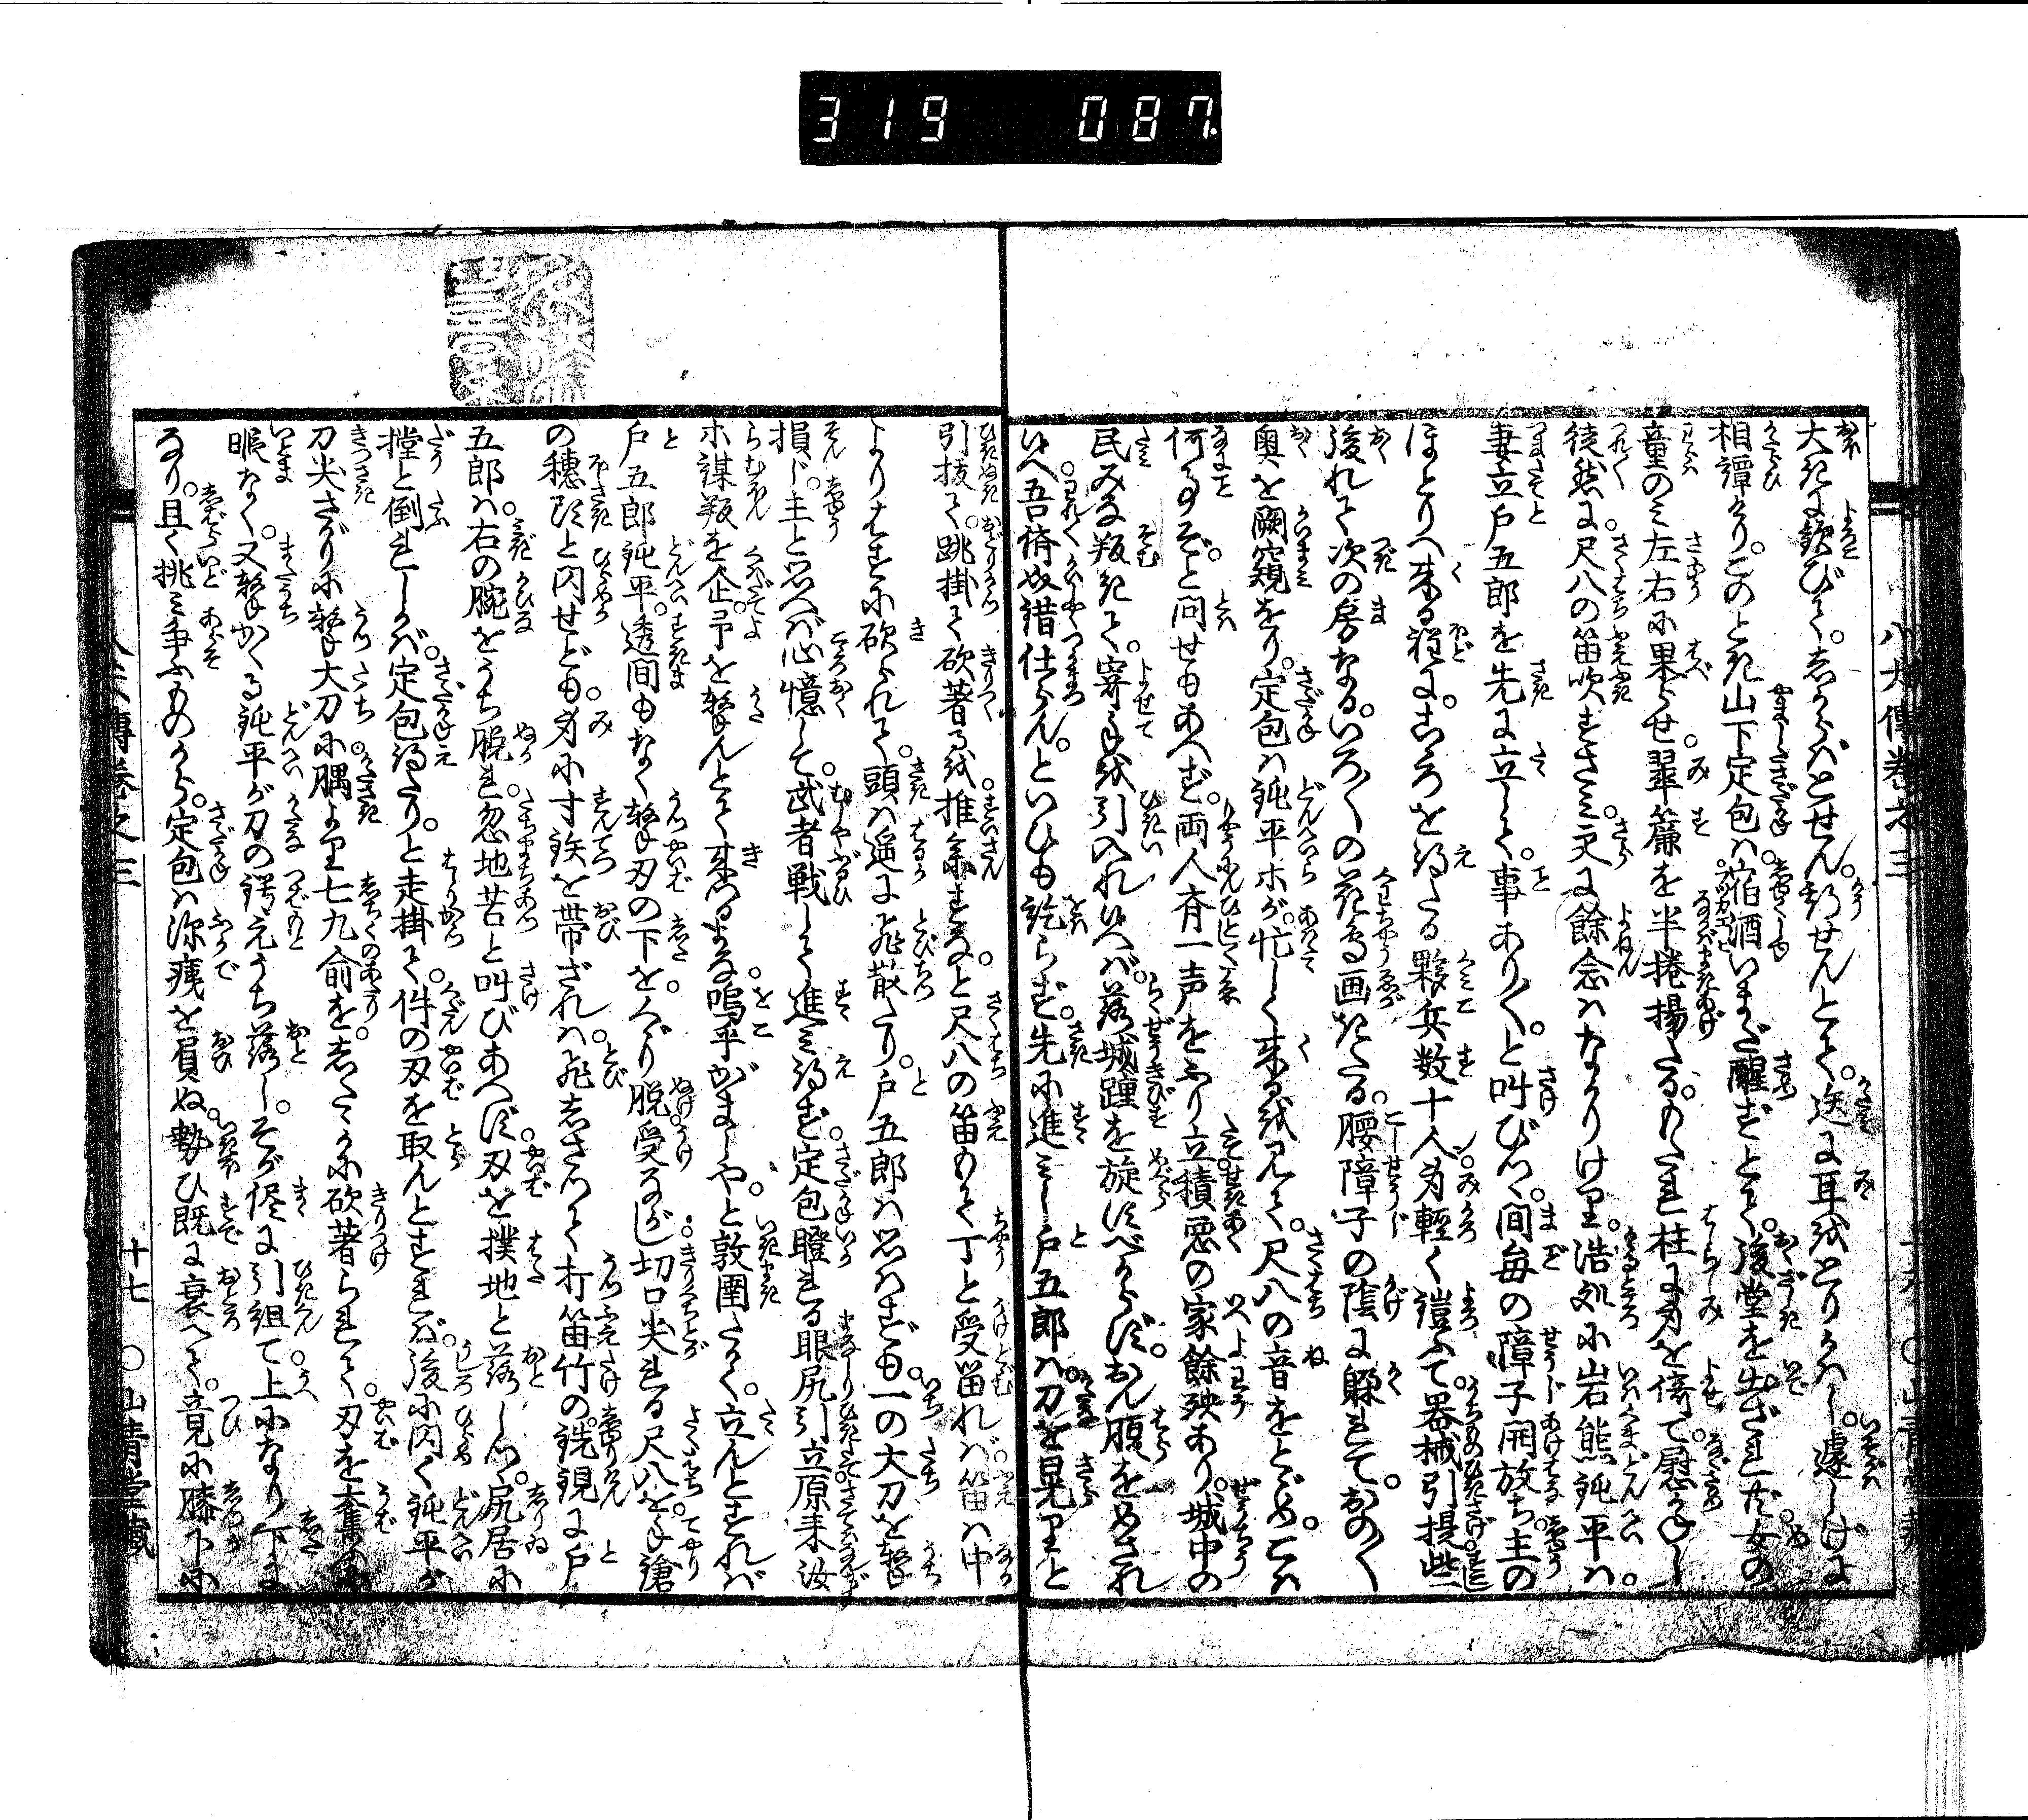 319 087
八犬傳巻之三
大きに歓びて。しからばとせん。かうせんとて。迭に耳をとりかはし。遽しげに
相譚けり。このとき山下定包は。宿酒いまだ醒ずとて。後堂を出ざれば。女の
童のみ左右に果らせ。翠簾を半捲揚たる。あたれ柱に身を倚て。慰かねし
徒然に。尺八の笛吹すさみ。更に餘念はなかりけり。浩処に岩熊鈍平は。
妻立戸五郎を先に立して。事あり〳〵。と叫びつゝ。間毎の障子開放ち。主の
ほとりへ来る程に。こゝろを得たる夥兵数十人。身輕く鎧ふて。器械引提。些
後れて次の房なる。いろ〳〵の花鳥画きたる。腰障子の蔭に躱れて。おの〳〵
奥を闕窺をり。定包は鈍平ホが。忙しく来るを見て。尺八の音をとゞめ。こは
何事ぞ。と問せもあへず。両人斉一声をふり立。積悪の家餘殃あり。城中の
民みな叛きて。寄手を引入れ候へば。落城踵を旋すべからず。おん腹をめされ
候へ。吾儕奴借仕らん。といひも訖らず。先に進みし戸五郎は。刀を晃りと
引抜て。跳掛て砍著るを。推參すな。と尺八の笛もて丁と受畄れば。笛は中
よりはすに砍られて。頭は遥に飛散たり。戸五郎は思はずも。一の大刀を撃
損じ。主と思へば心憶して。武者戦して進み得ず。定包瞪れる眼尻引立。原来汝
ホ謀叛を企。予を撃んとて来つるよな。嗚乎がましや。と敦圉たかく。立んとすれば
戸五郎鈍平。透間もなく撃刃の下を。くゞり脱。受ながし。切口尖れる尺八を。手鎗
の穂頭と閃せども。身に寸鉄を帯ざれば。飛しさつて打笛竹の。銃鋧に戸
五郎は。右の腕をうち脱れ。忽地苦と叫びあへず。刃を撲地と落しつゝ。尻居に
撞と倒れしかば。定包得たり。と走掛て。件の刃を取んとすれば。後に閃く鈍平が
刀尖さがりに撃大刀に。髃より七九俞を。したゝかに砍著られて。刃を奪ふに
暇なく。又撃かくる鈍平が。刀の鍔元うち落し。そが侭に引組て。上になり下に
なり。且く挑み争ふものから。定包は深痍を負ぬ。勢ひ既に衰へて。竟に膝下に
十七 〇山青堂藏